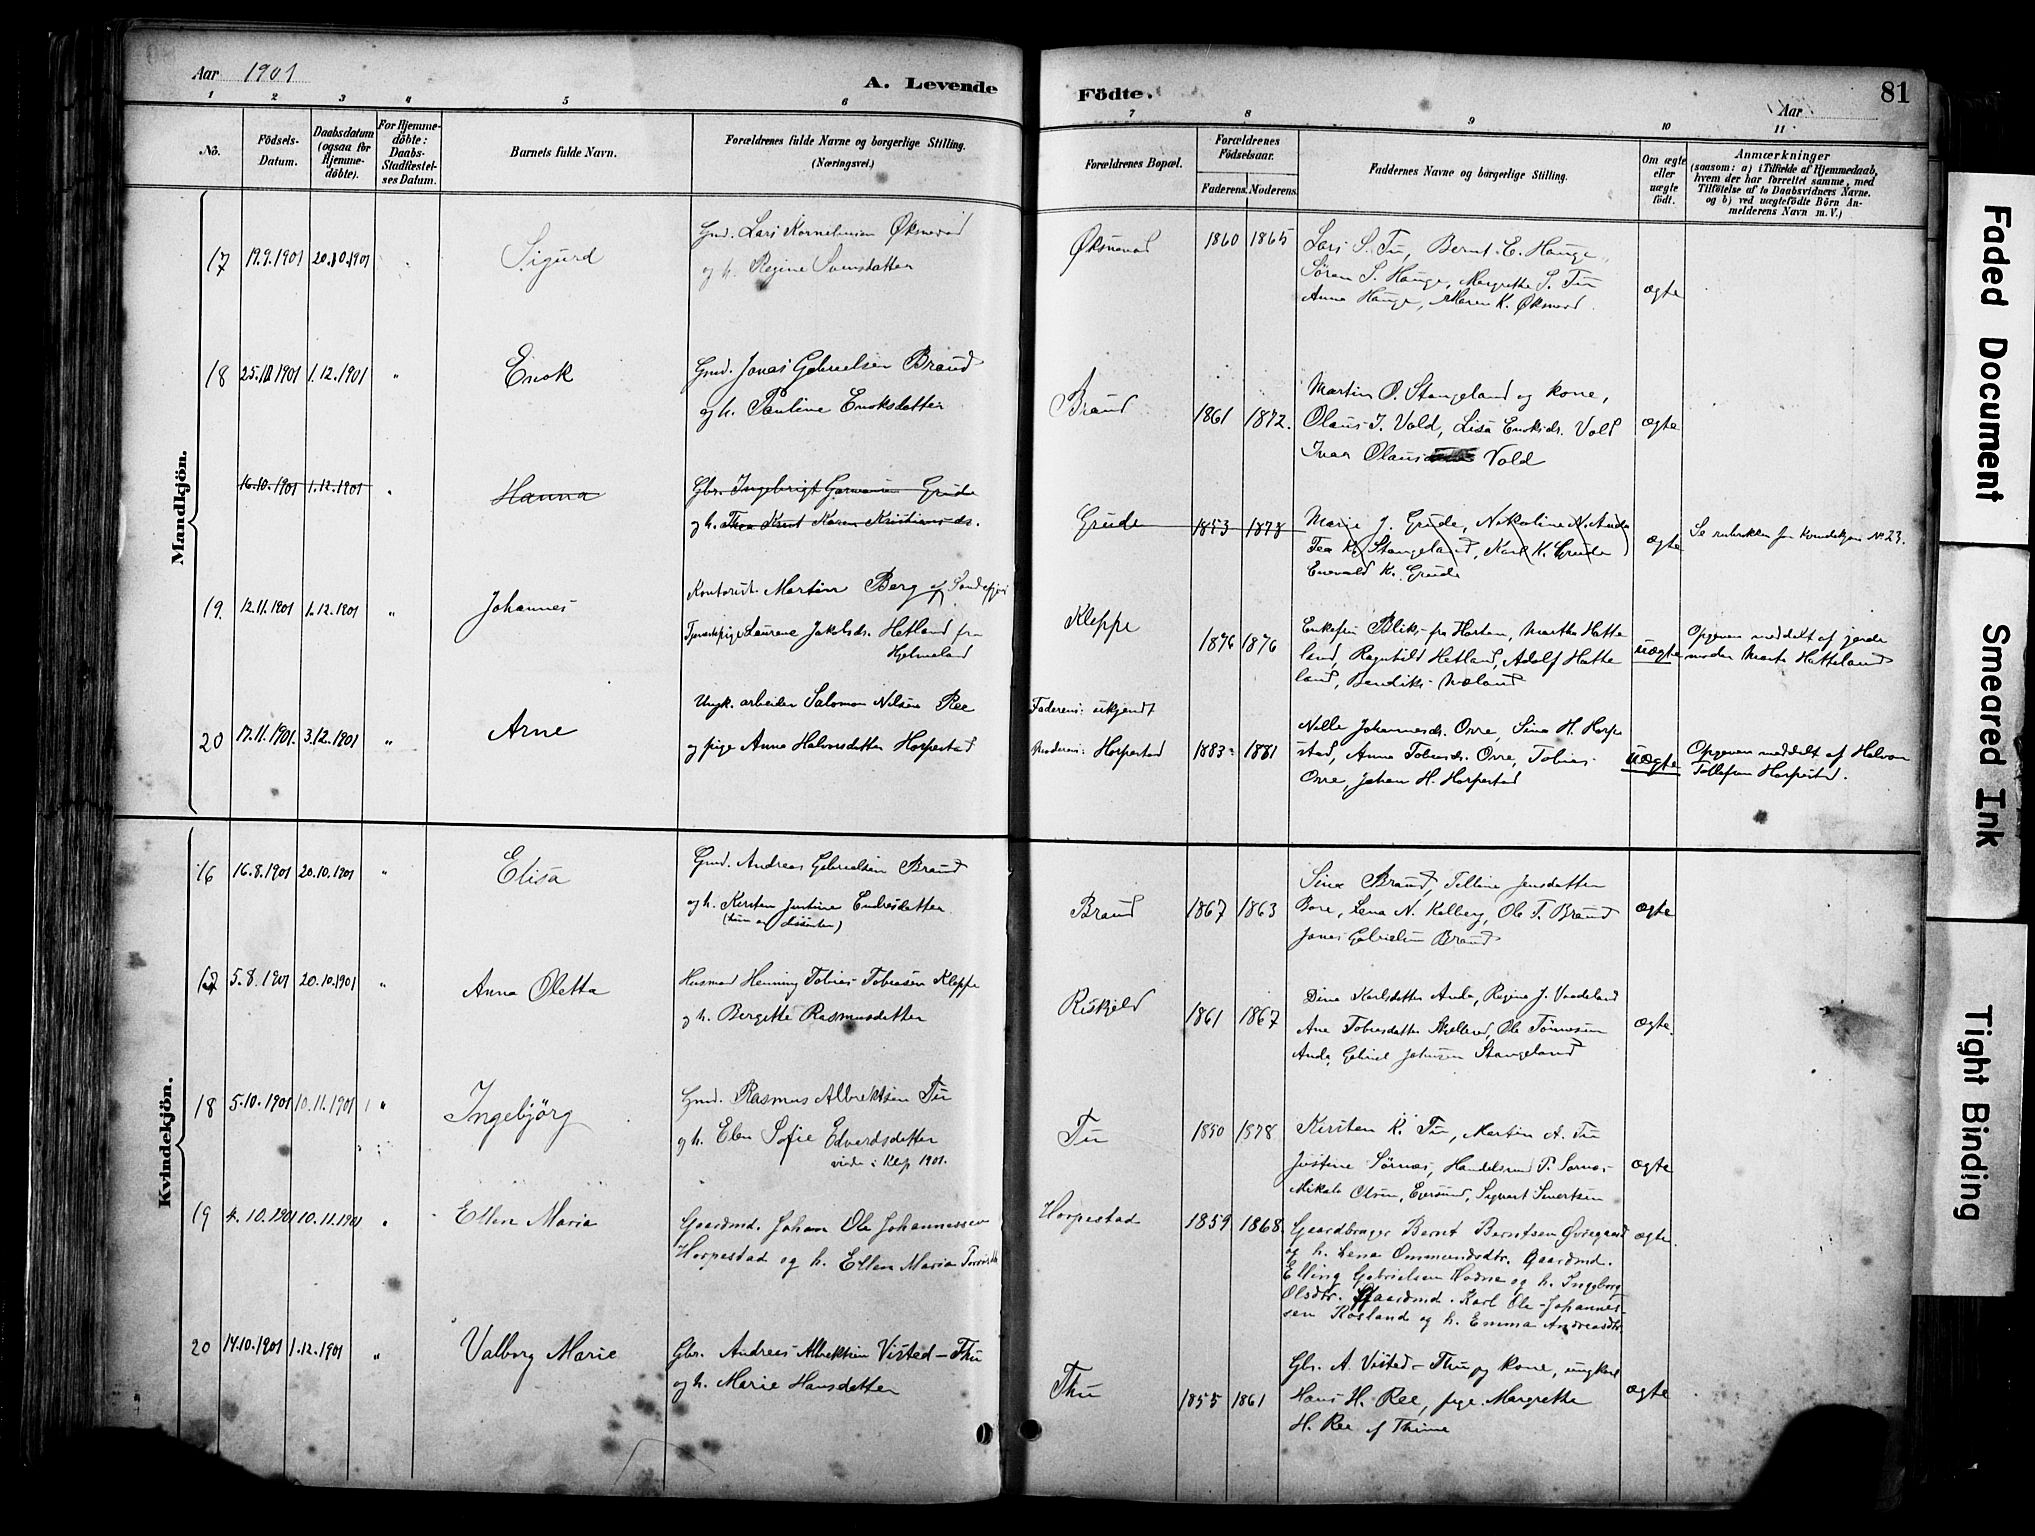 Aar 1901
A. Levende Födte.
Aar
81
1 2 3 4 5 6 7 8 9 10 11
No.
Födsels-Datum.
Daabsdatum (ogsaa for Hjemme-döbte).
For Hjemme-döbte: Daabs-Stadfæstel-ses Datum.
Barnets fulde Navn.
Forældrenes fulde Navne og borgerlige Stilling. (Næringsvei.)
Forældrenes Bopæl.
Forældrenes Födselsaar.
Faderens. Moderens.
Faddernes Navne og borgerlige Stilling.
Om ægte eller uægte födt.
Anmærkninger
(saasom: a) i Tilfælde af Hjemmedaab, hvem der har forrettet samme, med Tilföielse af to Daabsvidners Navne, og b) ved uægtefödte Börn Anmelderens Navn m. V.)
Mandkjön.
17 19.9.1901 20.10.1901 " Sigurd
Gmd. Lars Korneliusen Øksnevad
og h. Regine Svensdatter
Øksnevad 1860 1865
Lars S. Tu, Bernt E. Hauge,
Sören S. Hauge, Margrethe S. Tu
Anna Hauge, Maren K. Øksnevad
ægte
18 25.10.1901 1.12.1901 " Enok
Gmd. Jonas Gabrielsen Braud
og h. Pauline Enoksdatter
Braud 1861 1872.
Martin O. Stangeland og kone,
Olaus I. Vold, Lisa Enoksds. Vold
Ivar Olaus Vold
ægte
16.10.1901 1.12.1901 " Hanna
Gbr. Ingebrigt Grude
og h. Thea Knut Karen Kristians ds.
Grude 1853 1878
Marie J. Grude, Nikoline K. Anda
Tea K. Stangeland, Karl K. Grude
Enevald K. Grude
ægte
Se rubrikken for Kvindekjøn No 23.
19. 12.11.1901 1.12.1901 " Johannes
Kontorist Martin Berg af Sandefjord
Tjenestepige Laurene Jakobsds. Hetland fra
Hjelmeland
Kleppe 1876 1876
Enkefru Bliks fra Horten, Martha Hatteland, Ragnhild Hetland, Adolf Hatteland, Bendiks Næland
uægte
Opgaven meddelt af jordemoder Marta Hatteland
20 17.11.1901. 3.12.1901 " Arne
Ungk. arbeider Salomon Nilsen Ree
og pige Anna Halvorsdatter Horpestad
Faderens: ukjendt
Moderens: Horpestad 1883 1881
Nelle Johannesds. Orre, Sina H. Horpestad, Anna Tobiasds. Orre, Tobias
Orre, Johan H. Horpestad
uægte
Opgaven meddelt af Halvor
Tollefsen Horpestad.
Kvindekjön.
16 16.8.1901 20.10.1901 " Elisa
Gmd. Andreas Gabrielsen Braud
og h. Kirsten Justine Endresdatter
Braud 1867 1863
Sina Braud, Telline Jensdatter
Bore, Lena N. Kalberg, Ole T. Braud
Jonas Gabrielsen Braud
ægte
17 5.8.1901 20.10.1901 " Anna Oletta
Husmad Henning Tobias Tobiasen Kleppe
og h. Bergitte Rasmusdatter
Riskjeld 1861 1867
Dina Karlsdatter Anda, Regina J. Vaadeland
Ane Tobiasdatter, Ole Tønnesen
Anda, Gabriel Johnsen Stangeland
ægte.
18 5.10.1901 10.11.1901 " Ingebjörg
Gmd. Rasmus Albrektsen Tu
og h. Elen Sofie Edvardsdatter
viede i Klep 1901.
Tu 1850 1878
Kirsten K. Tu, Martin A. Tu
Justine Sørnes, Handelsmd P. Sørnes
Mikale Olsen, Egersund, Sigvart Sivertsen
ægte
19 4.10.1901 10.11.1901 " Ellen Maria
Gaardmd. Johan Ole Johannessen
Horpestad og h. Ellen Maria
Horpestad 1859 1868.
Gaardbruger Bernt Berntsen Øvregaard
og h. Lena Ommundsdtr. Gaardmd.
Elling Gabrielsen Hodne og h. Ingeborg
Olsdtr. Gaardmd. Karl Ole Johannessen Rosland og h. Emma Andreasdtr.
ægte.
20 14.10.1901 1.12.1901 " Valborg Marie
Gbr. Andreas Albrektsen Visted-Thu
og h. Marie Hansdatter
Thu 1855 1861
Gbr. A. Visted-Thu og kone, ungkarl
Hans H. Ree, pige Margrethe
H. Ree af Thime
ægte
Faded Document
Smeared Ink
Tight Binding